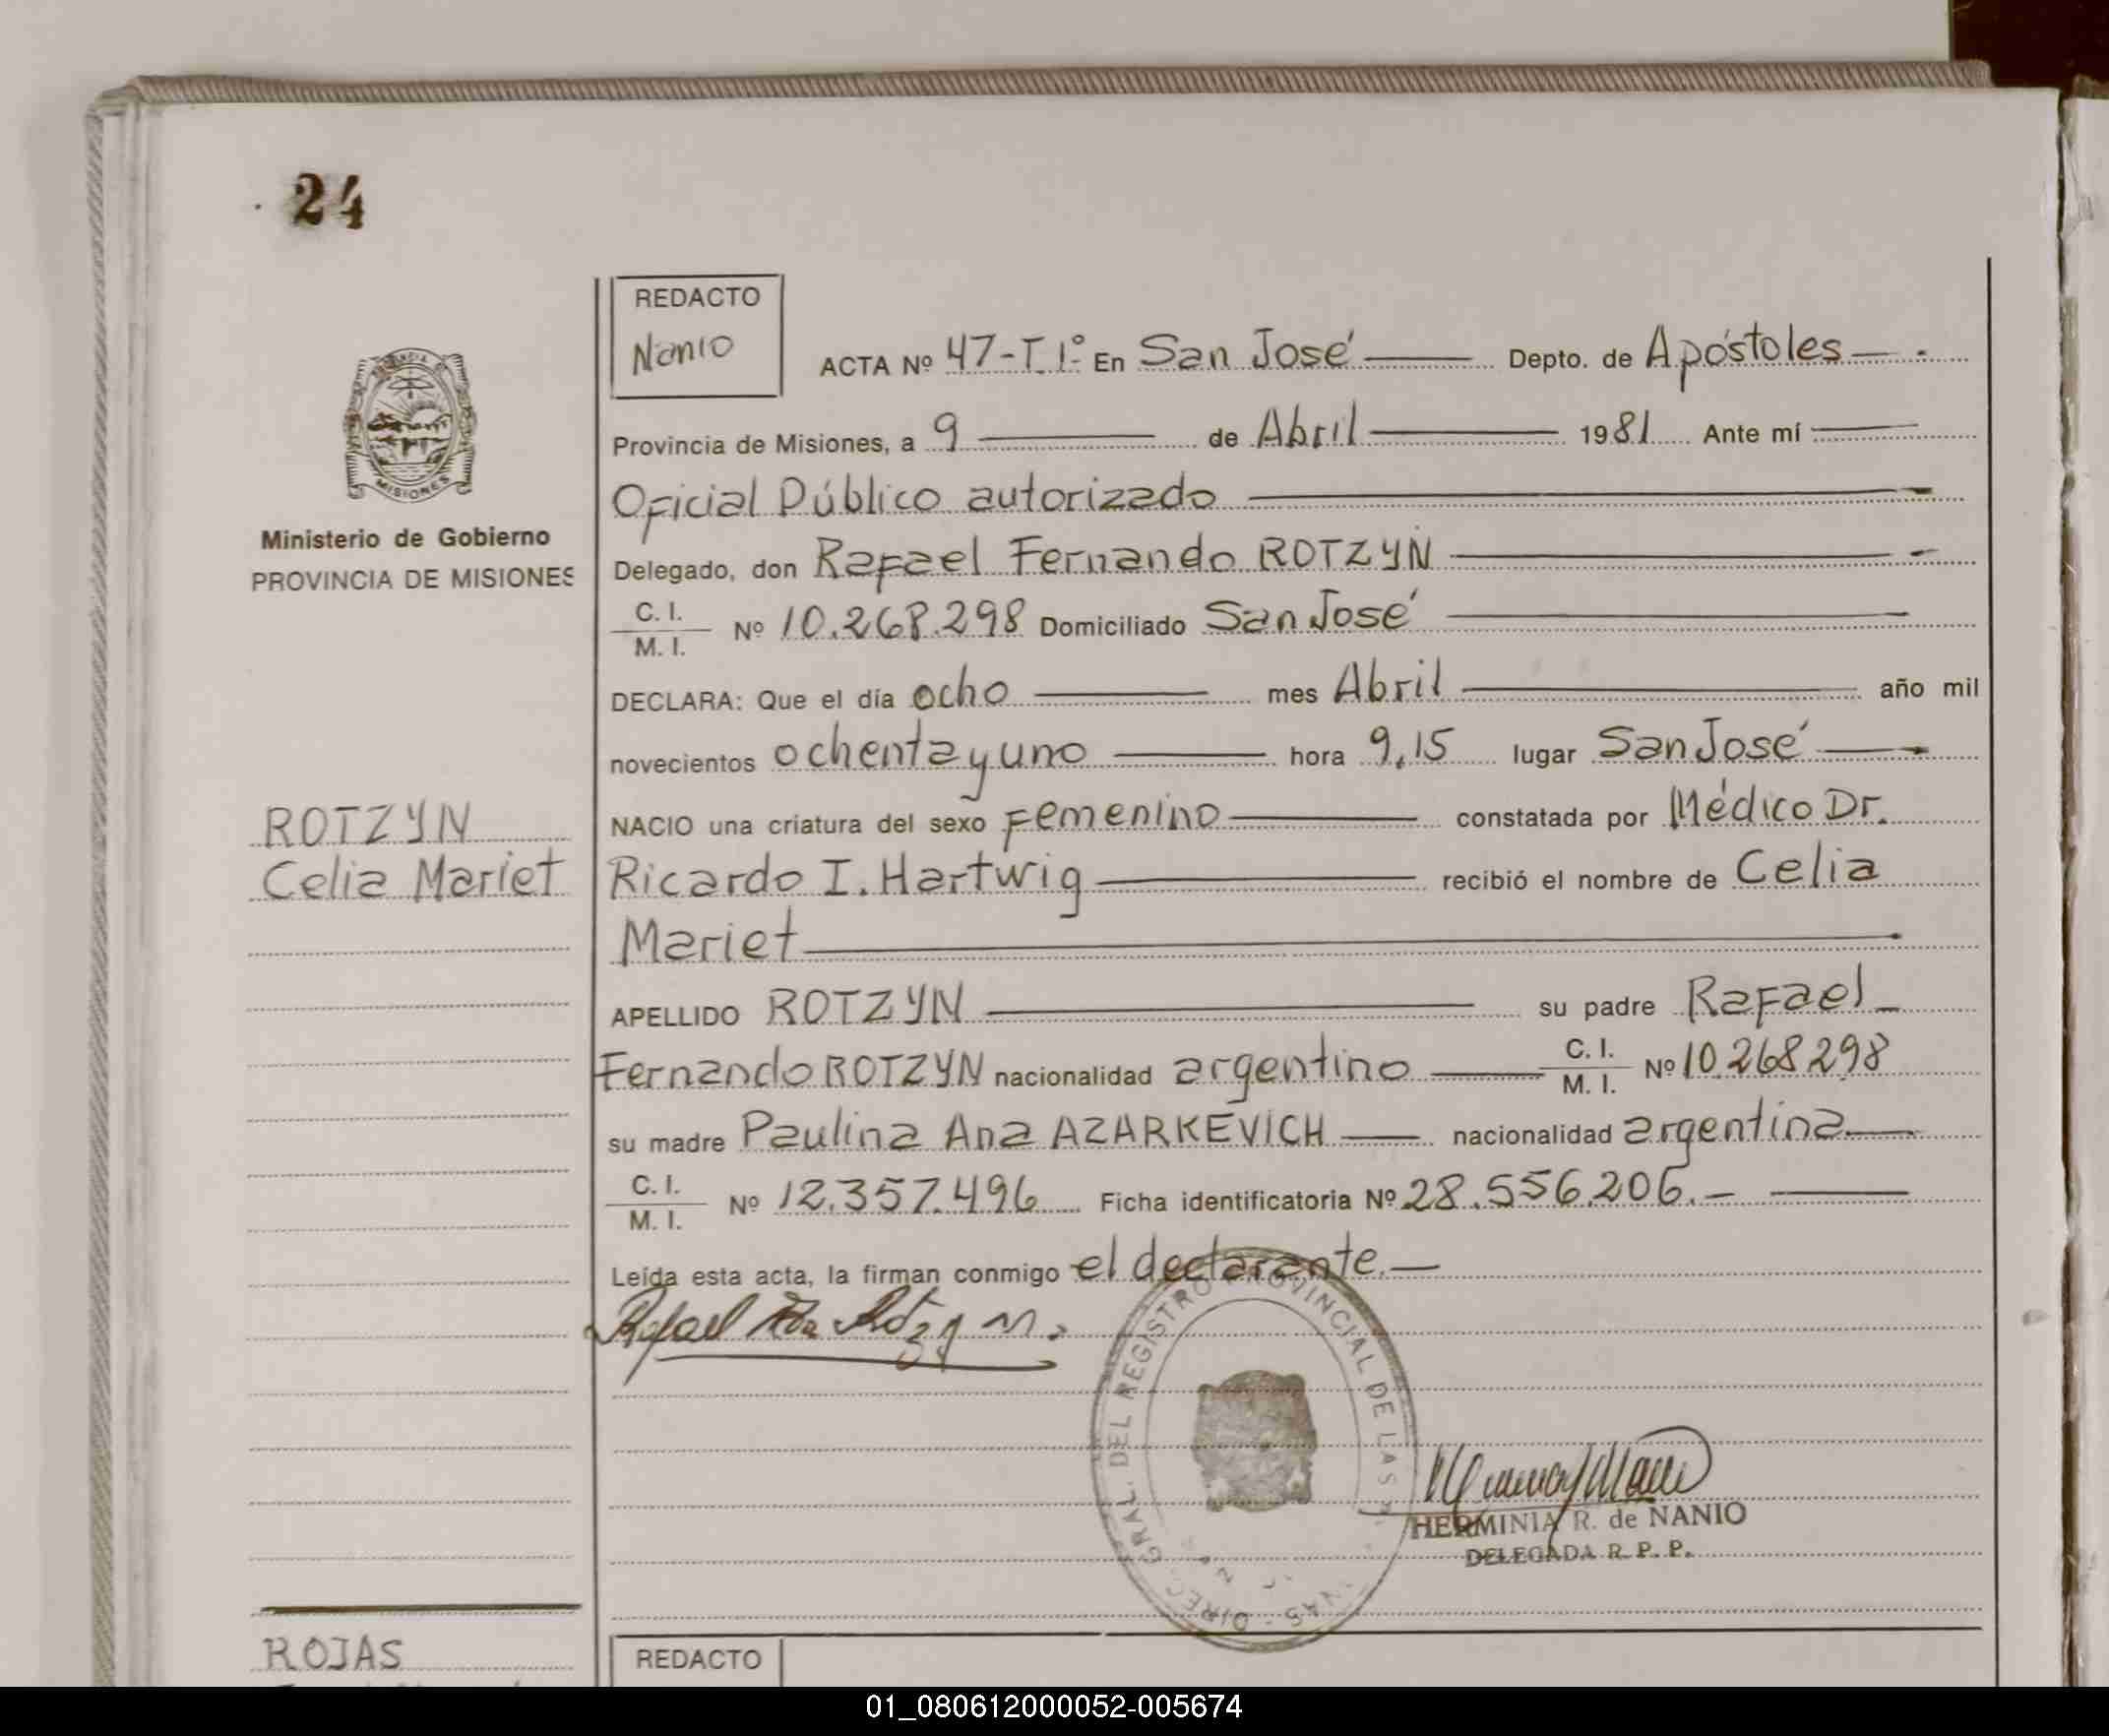 24
REDACTO
Nanio
ACTA Nº 47-T.1º En San José Depto. de Apóstoles
Provincia de Misiones, a 9 de Abril 1981 Ante mí
Oficial Público autorizado
Delegado, don Rafael Fernando ROTZYN
C. I.
M. I. Nº 10.268.298 Domiciliado San José
DECLARA: Que el día ocho mes Abril año mil
novecientos ochenta y uno hora 9,15 lugar San José
NACIO una criatura del sexo femenino constatada por Médico Dr.
Ricardo I. Hartwig recibió el nombre de Celia
Mariet
APELLIDO ROTZYN su padre Rafael
Fernando ROTZYN nacionalidad argentino C. I. M. I. Nº 10.268298
su madre Paulina Ana AZARKEVICH nacionalidad argentina
C. I.
M. I. Nº 12.357.496 Ficha identificatoria Nº 28.556.206.-
Leída esta acta, la firman conmigo el declarante.
Rafael Fdo Rotzyn.
DIREC. GRAL. DEL REGISTRO PROVINCIAL DE LAS
HERMINIA R. de NANIO
DELEGADA R. P. P.
MISIONES
Ministerio de Gobierno
PROVINCIA DE MISIONES
ROTZYN
Celia Mariet
ROJAS
REDACTO
01_080612000052-005674